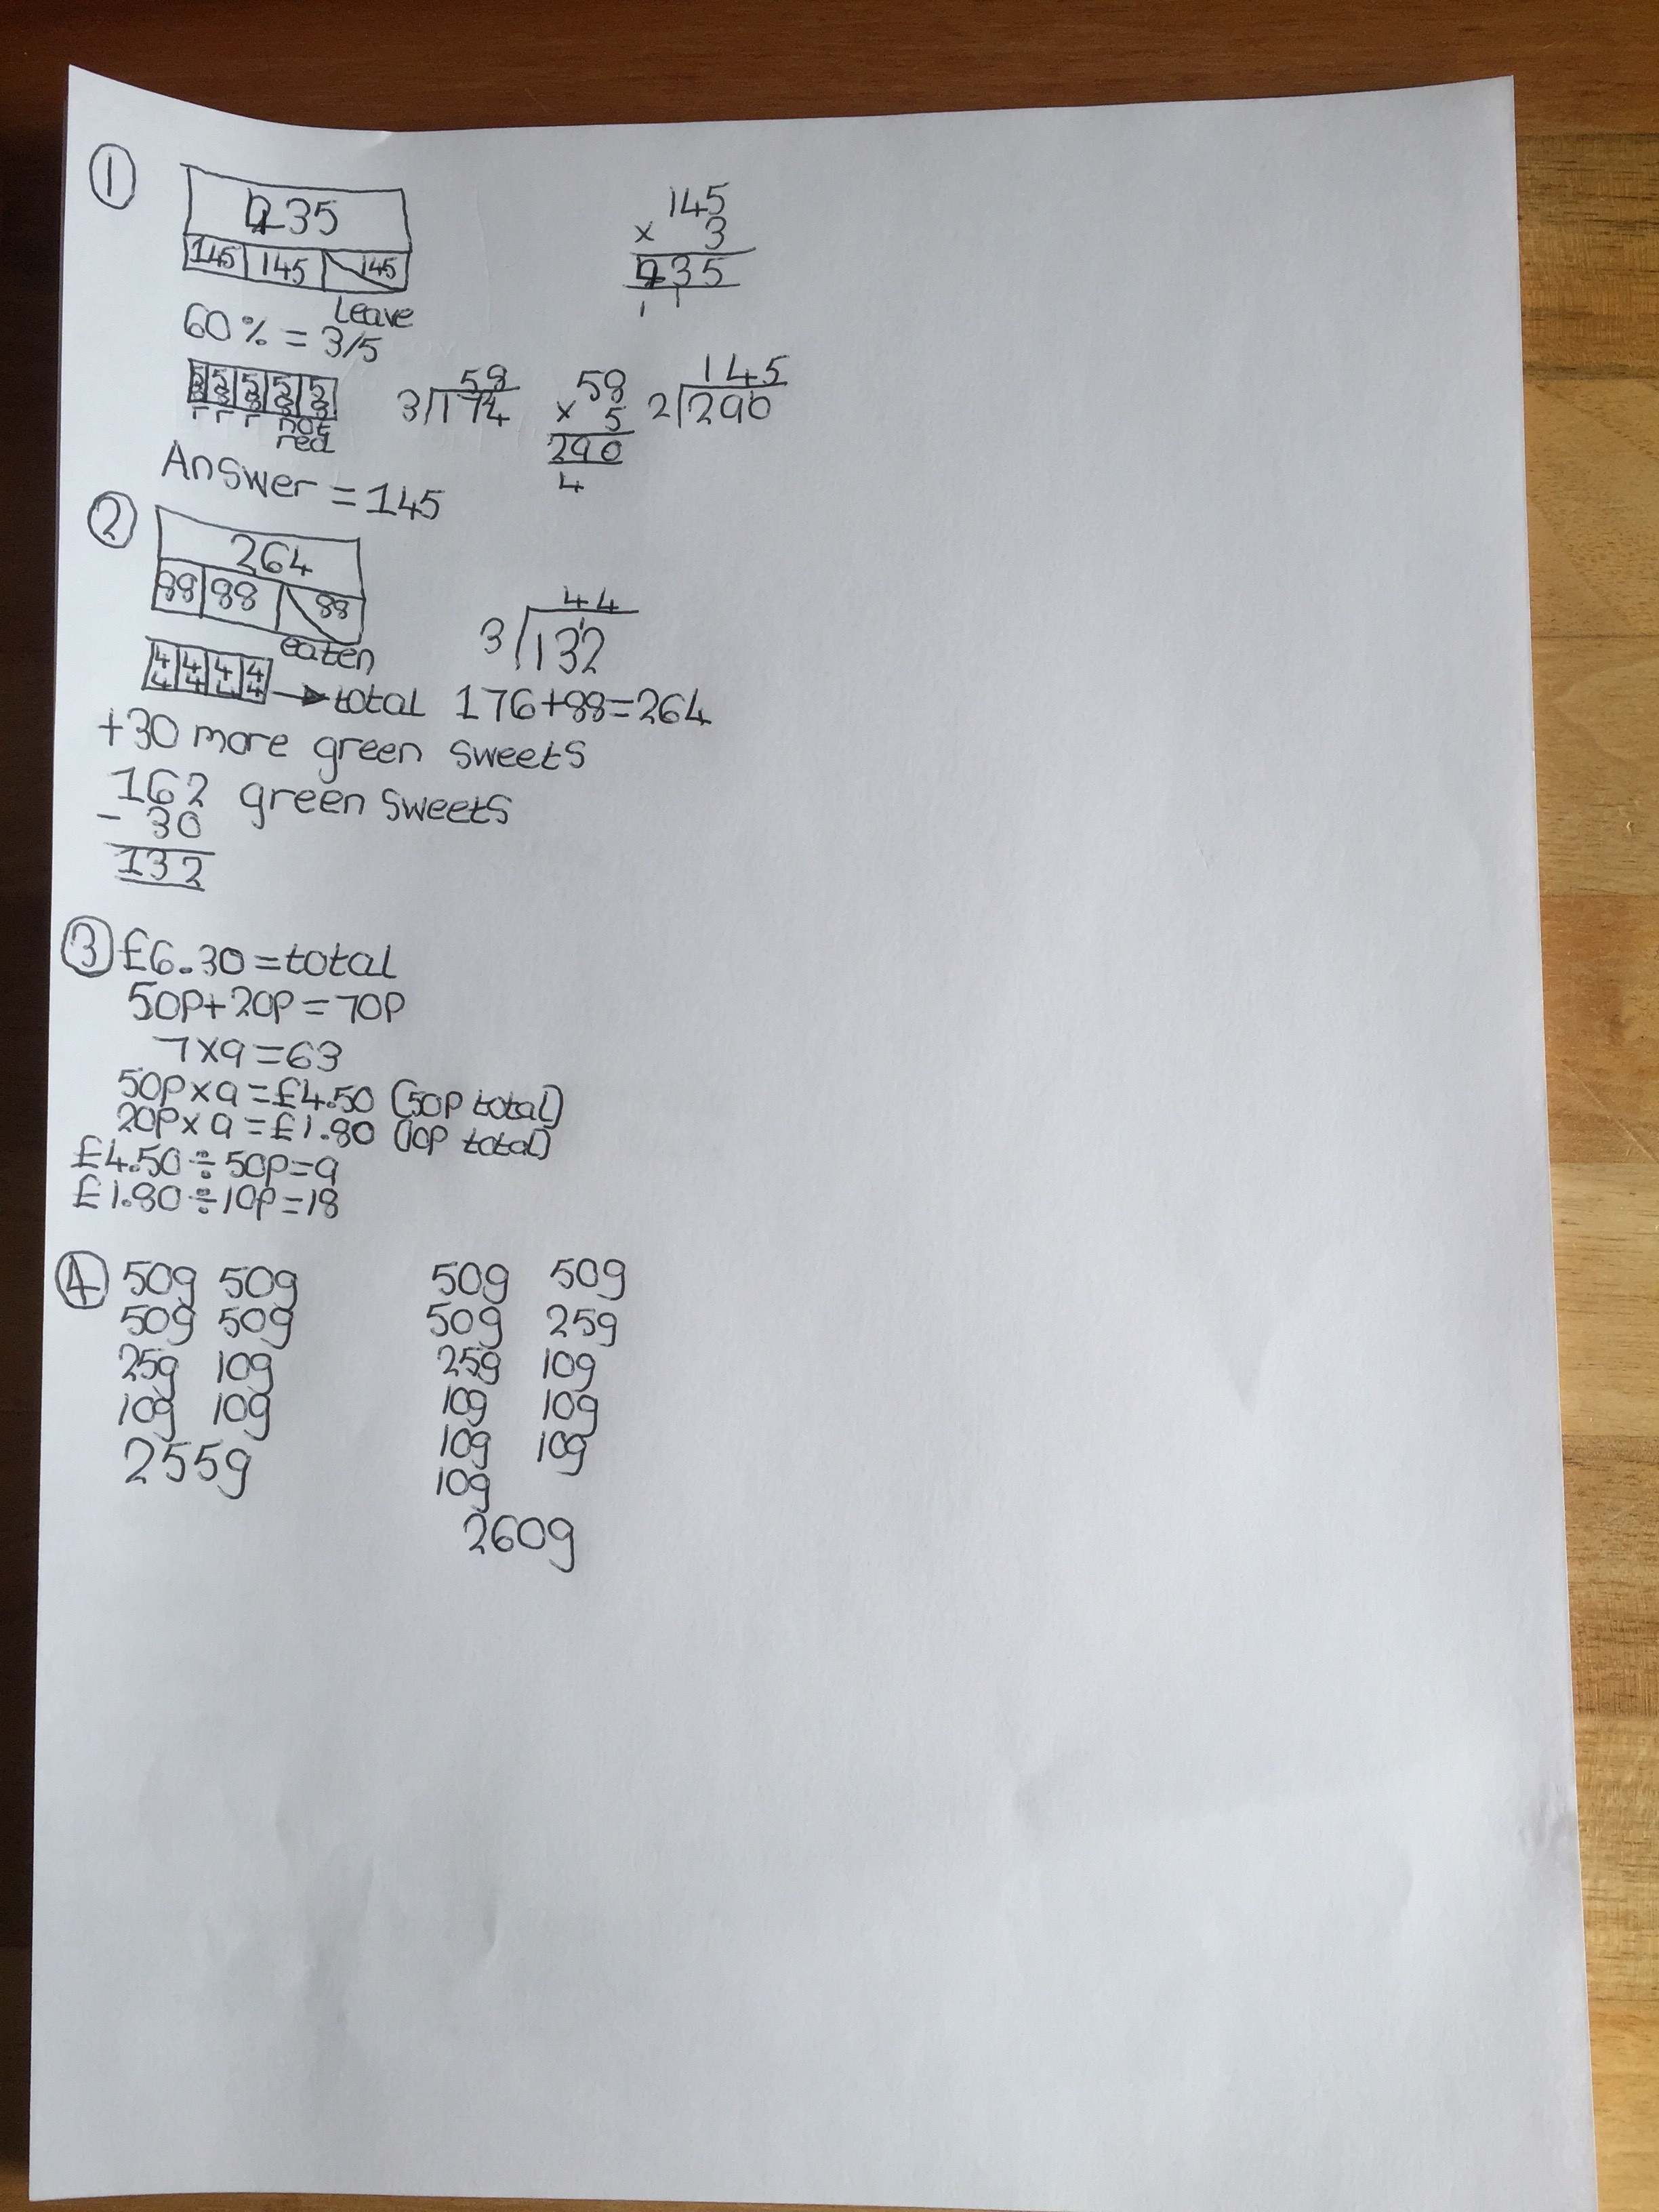 ①
435
145 145 145
Leave
145
× 3
435
1 1
60% = 3/5
58 58 58 58 58
r r r not
red
58
3/174
58
× 5
290
4
145
2/290
Answer = 145
②
264
88 88 88
eaten
44
3/132
1
44 44 44 44 → total 176+88=264
+30 more green sweets
162 green sweets
- 30
132
③ £6.30=total
50p+20p=70p
7×9=63
50p×9=£4.50 (50p total)
20p×9=£1.80 (10p total)
£4.50÷50p=9
£1.80÷10p=18
④ 50g 50g
50g 50g
25g 10g
10g 10g
255g
50g 50g
50g 25g
25g 10g
10g 10g
10g 10g
10g
260g